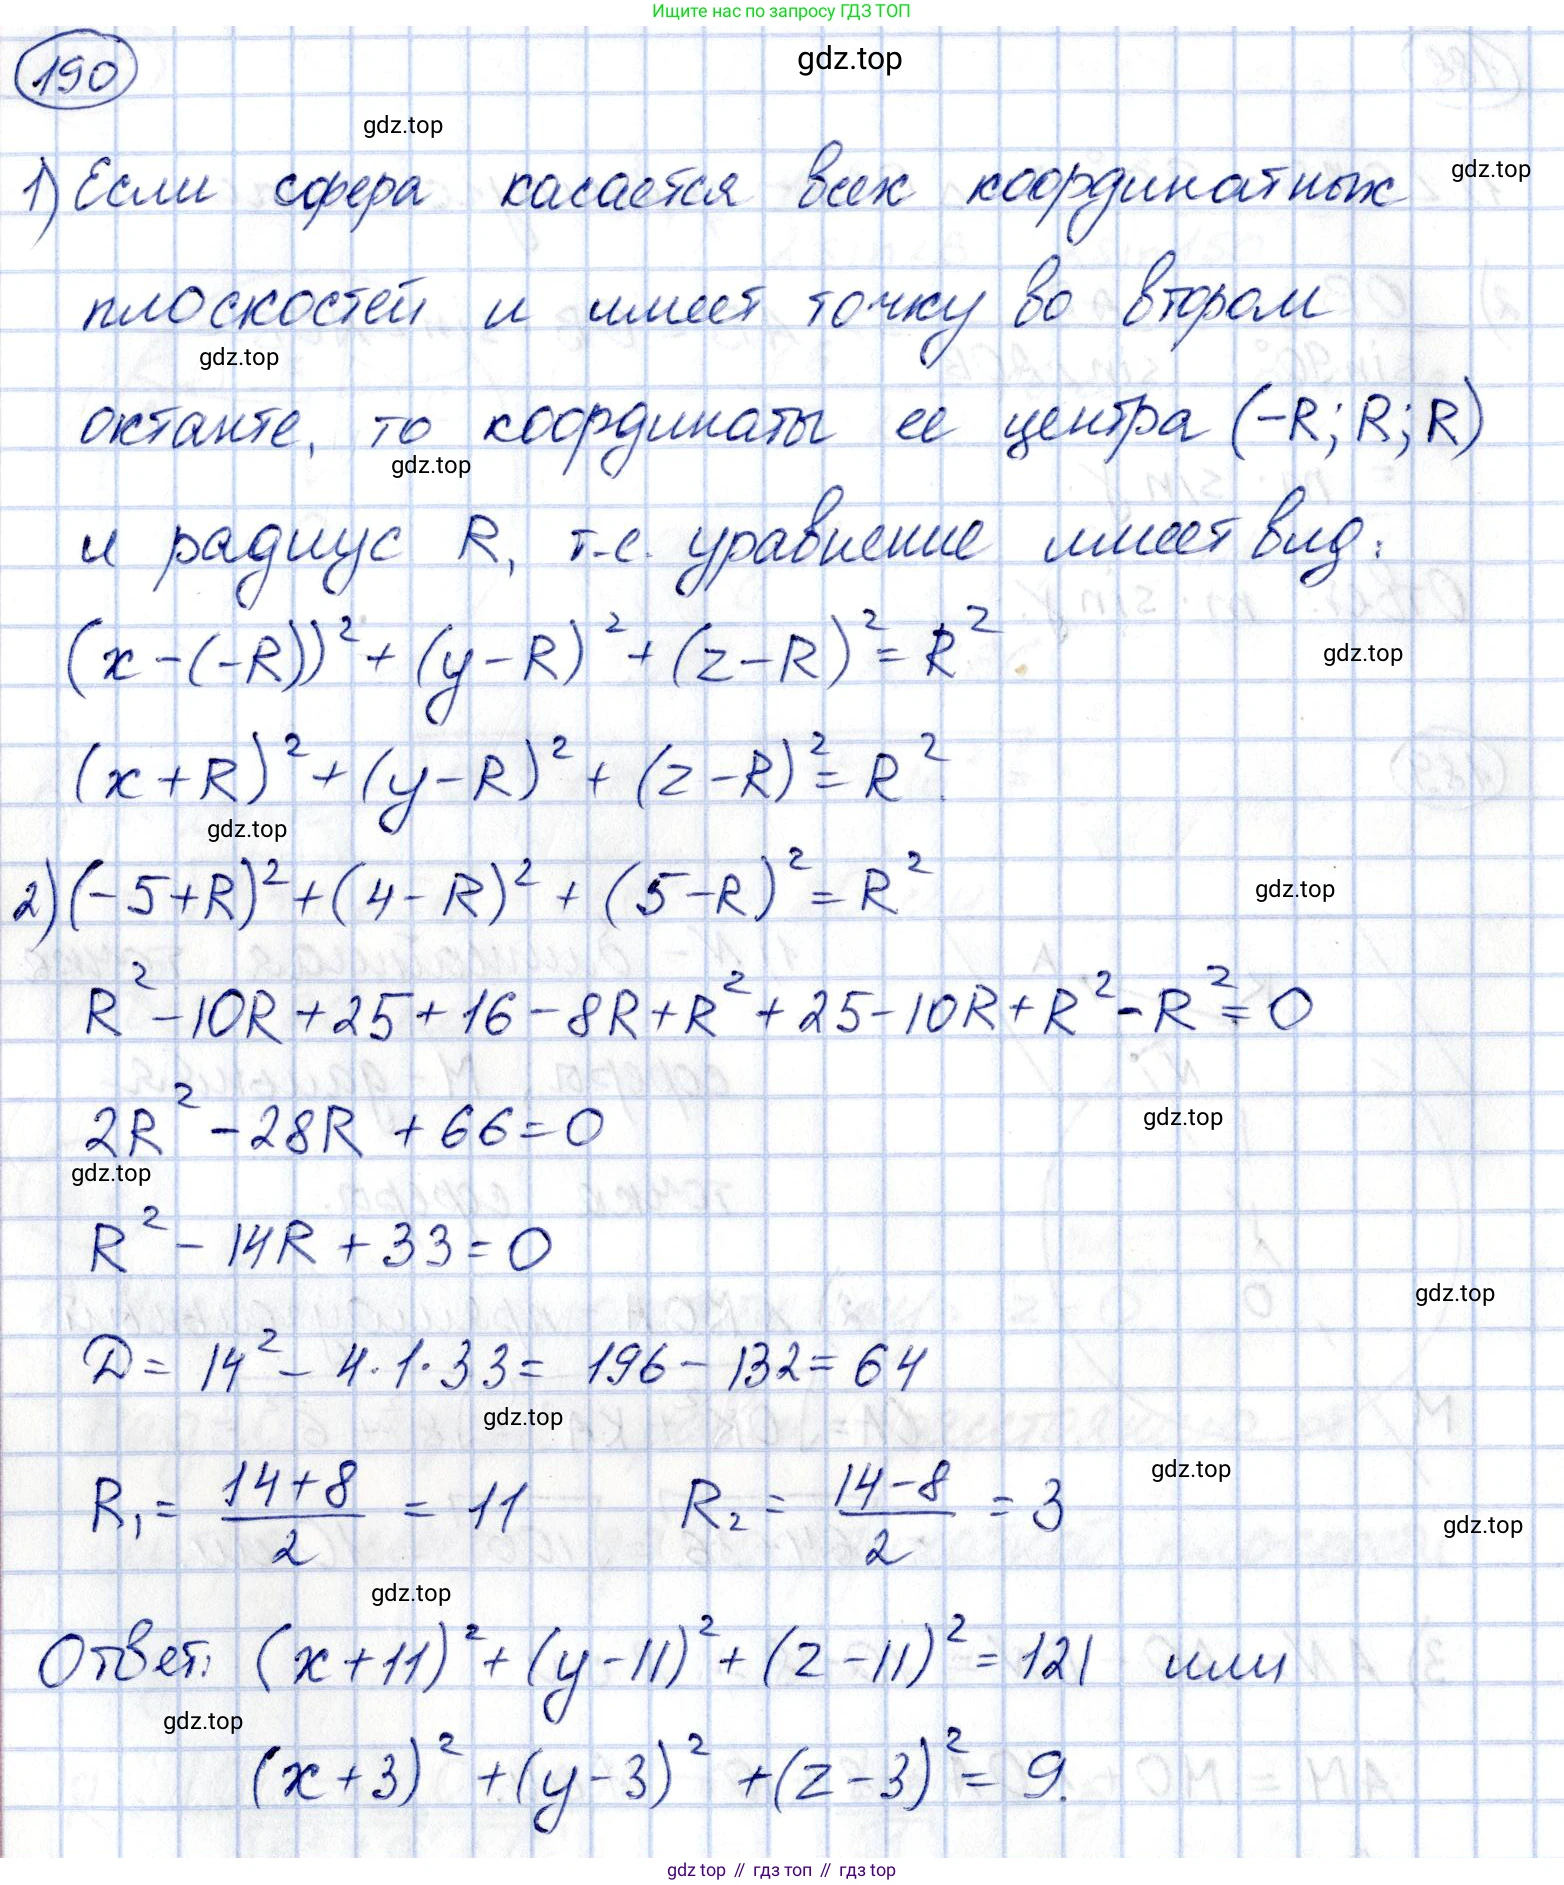 Ищите нас по запросу ГДЗ ТОП
190
gdz.top
gdz.top
1) Если сфера касается всех координатных
gdz.top
плоскостей и имеет точку во втором
gdz.top
октанте, то координаты ее центра (-R; R; R)
gdz.top
и радиус R, т.е. уравнение имеет вид:
(x-(-R))²+(y-R)²+(z-R)²=R²
gdz.top
(x+R)²+(y-R)²+(z-R)²=R².
gdz.top
2)(-5+R)²+(4-R)²+(5-R)²=R²
gdz.top
R²-10R+25+16-8R+R²+25-10R+R²-R²=0
2R²-28R+66=0
gdz.top
gdz.top
R²-14R+33=0
gdz.top
D=14²-4·1·33=196-132=64
gdz.top
R₁=(14+8)/2=11 R₂=(14-8)/2=3
gdz.top
gdz.top
gdz.top
Ответ: (x+11)²+(y-11)²+(z-11)²=121 или
gdz.top
(x+3)²+(y-3)²+(z-3)²=9.
gdz top // гдз топ // гдз top